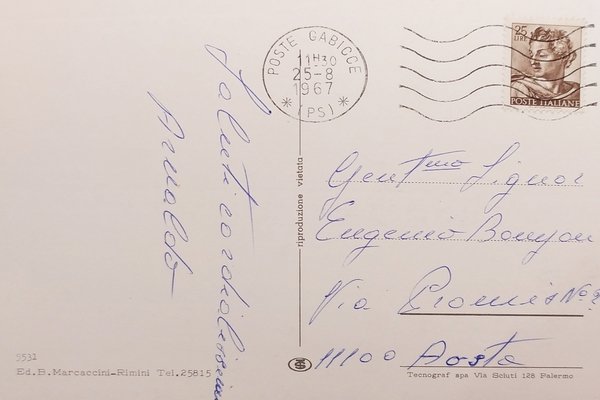 POSTE GABICCE
11H30
25-8
1967
* (PS) *
25
LIRE
POSTE ITALIANE
Saluti cordialissimi
Arnaldo
riproduzione vietata
Gent.mo Signor
Eugenio
Via Promis No 2
11100 Aosta
5531
Ed.B.Marcaccini-Rimini Tel.25815
Tecnograf spa Via Sciuti 128 Palermo